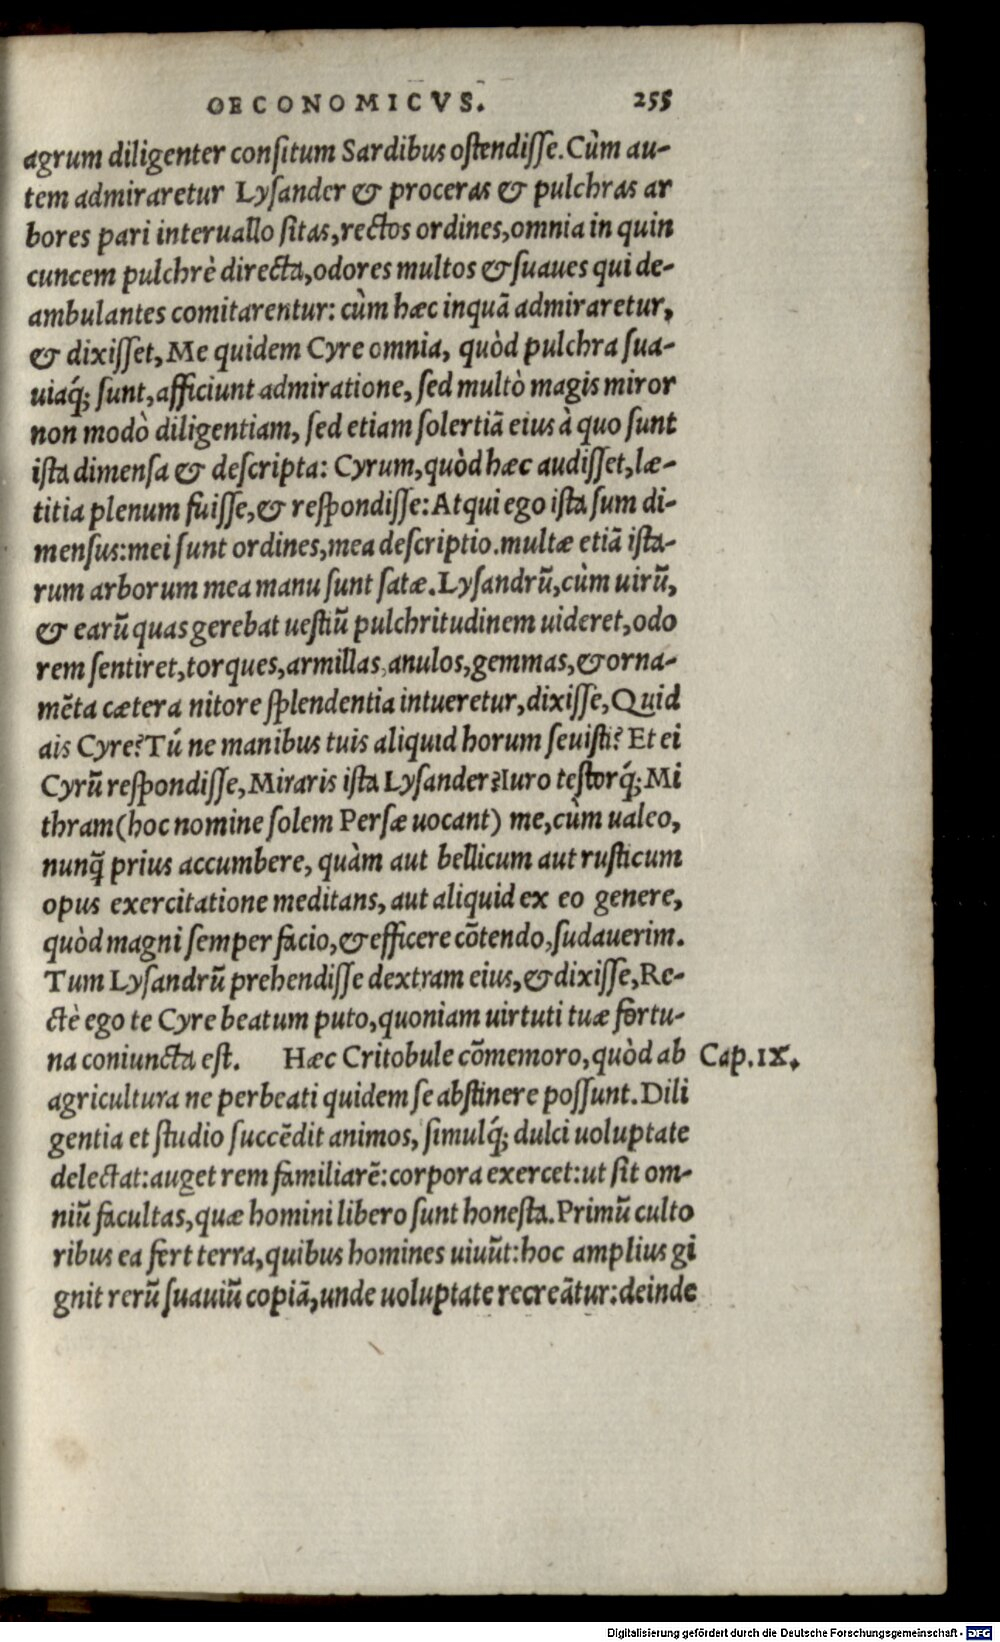 OECONOMICVS. 255
agrum diligenter conſitum Sardibus oſtendiſſe. Cùm au-
tem admiraretur Lyſander & proceras & pulchras ar
bores pari interuallo ſitas, rectos ordines, omnia in quin
cuncem pulchrè directa, odores multos & ſuaues qui de-
ambulantes comitarentur: cùm hæc inquā admiraretur,
& dixiſſet, Me quidem Cyre omnia, quòd pulchra ſua-
uiaq́; ſunt, afficiunt admiratione, ſed multò magis miror
non modò diligentiam, ſed etiam ſolertiā eius à quo ſunt
iſta dimenſa & deſcripta: Cyrum, quòd hæc audiſſet, læ-
titia plenum fuiſſe, & reſpondiſſe: Atqui ego iſta ſum di-
menſus: mei ſunt ordines, mea deſcriptio. multæ etiā iſta-
rum arborum mea manu ſunt ſatæ. Lyſandrũ, cùm uirũ,
& earũ quas gerebat ueſtiũ pulchritudinem uideret, odo
rem ſentiret, torques, armillas, anulos, gemmas, & orna-
mẽta cætera nitore ſplendentia intueretur, dixiſſe, Quid
ais Cyre? Tú ne manibus tuis aliquid horum ſeuiſti? Et ei
Cyrũ reſpondiſſe, Miraris iſta Lyſander? Iuro teſtorq́; Mi
thram (hoc nomine ſolem Perſæ uocant) me, cùm ualeo,
nunq̃ prius accumbere, quàm aut bellicum aut ruſticum
opus exercitatione meditans, aut aliquid ex eo genere,
quòd magni ſemper facio, & efficere cõtendo, ſudauerim.
Tum Lyſandrũ prehendiſſe dextram eius, & dixiſſe, Re-
ctè ego te Cyre beatum puto, quoniam uirtuti tuæ fortu-
na coniuncta eſt. Hæc Critobule cõmemoro, quòd ab Cap. IX.
agricultura ne perbeati quidem ſe abſtinere poſſunt. Dili
gentia et ſtudio ſuccẽdit animos, ſimulq́; dulci uoluptate
delectat: auget rem familiarẽ: corpora exercet: ut ſit om-
niũ facultas, quæ homini libero ſunt honeſta. Primũ culto
ribus ea fert terra, quibus homines uiuũt: hoc amplius gi
gnit rerũ ſuauiũ copiā, unde uoluptate recreātur: deinde
Digitalisierung gefördert durch die Deutsche Forschungsgemeinschaft - DFG